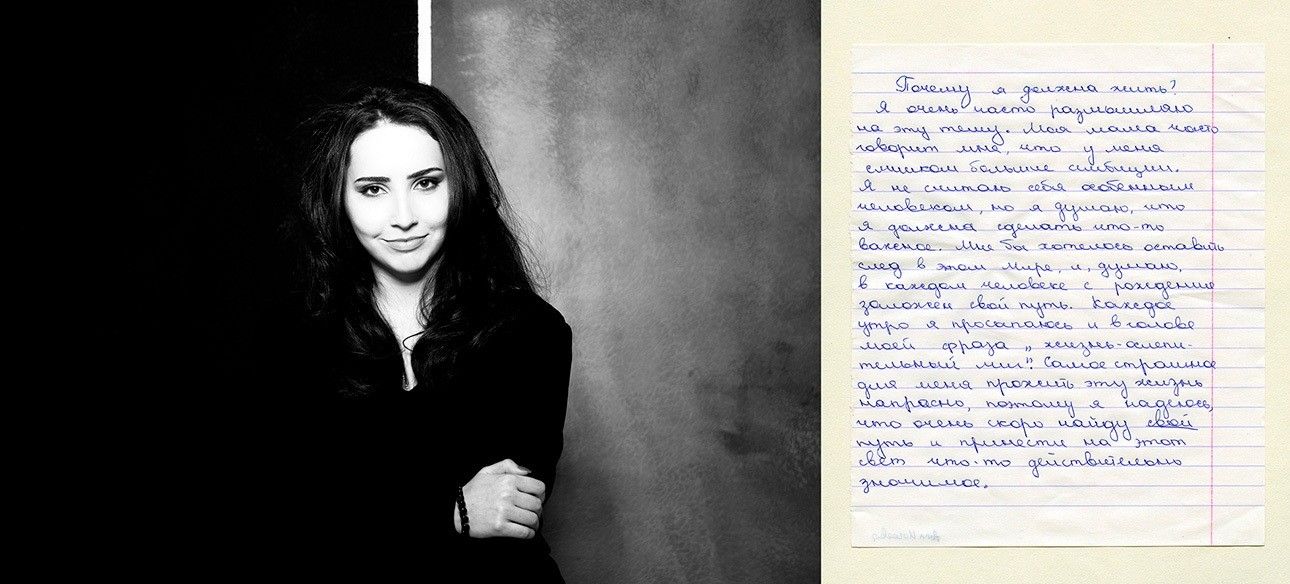 Почему я должна жить?
Я очень часто размышляю
на эту тему. Моя мама часто
говорит мне, что у меня
слишком большие амбиции.
Я не считаю себя особенным
человеком, но я думаю, что
я должна сделать что-то
важное. Мне бы хотелось оставить
след в этом мире, и, думаю,
в каждом человеке с рождения
заложен свой путь. Каждое
утро я просыпаюсь и в голове
моей фраза „жизнь-ослепи-
тельный миг". Самое страшное
для меня прожить эту жизнь
напрасно, поэтому я надеюсь,
что очень скоро найду свой
путь и принести на этот
свет что-то действительно
значимое.